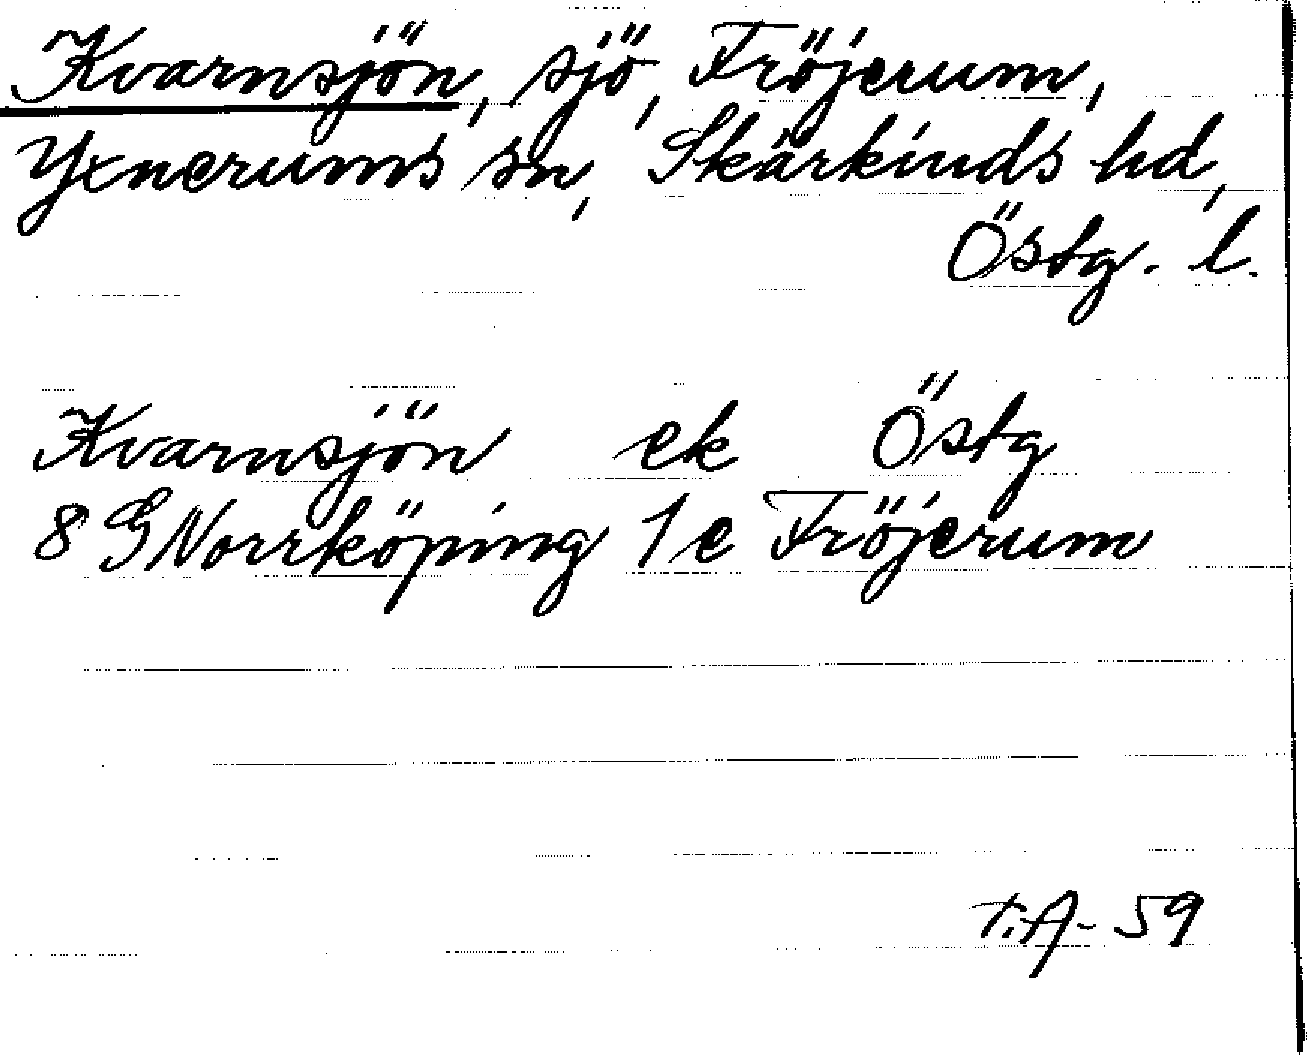 Kvarnsjön, sjö, Fröjerum,
Yxnerums sn, Skärkinds hd,
Östg. l.
Kvarnsjön ek Östg
8 G Norrköping 1 e Fröjerum
T.A-59